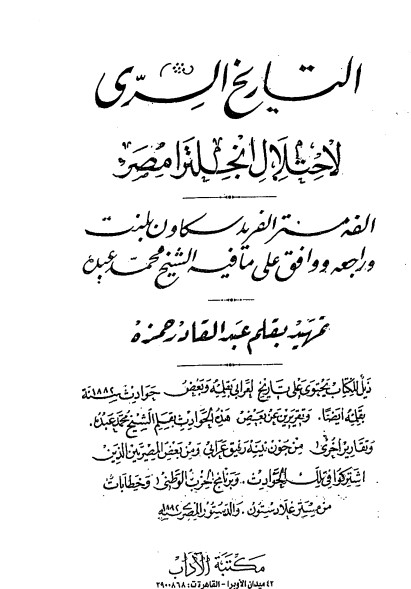 التاريخ السرى
لاحتلال انجلترا مصر
الفه مستر الفريد سكاون بلنت
وراجعه ووافق على مافيه الشيخ محمد عبده
تمهيد بقلم عبد القادر حمزه
ذيل للكتاب يحتوى على تاريخ لعرابى بقلمه وبعض حوادث سنة ١٨٨٢
بقلمه ايضًا. وتقريرين عن بعض هذه الحوادث بقلم الشيخ محمد عبده.
وتقارير اخرى من جون نينيه رفيق عرابى ومن بعض المصريين الذين
اشتركوا فى تلك الحوادث. وبرنامج الحزب الوطنى وخطابات
من مستر غلادستون. والدستور المصرى سنة ١٨٨٢
مكتبة الآداب
٤٢ ميدان الأوبرا - القاهرة ت: ٣٩٠٠٨٦٨